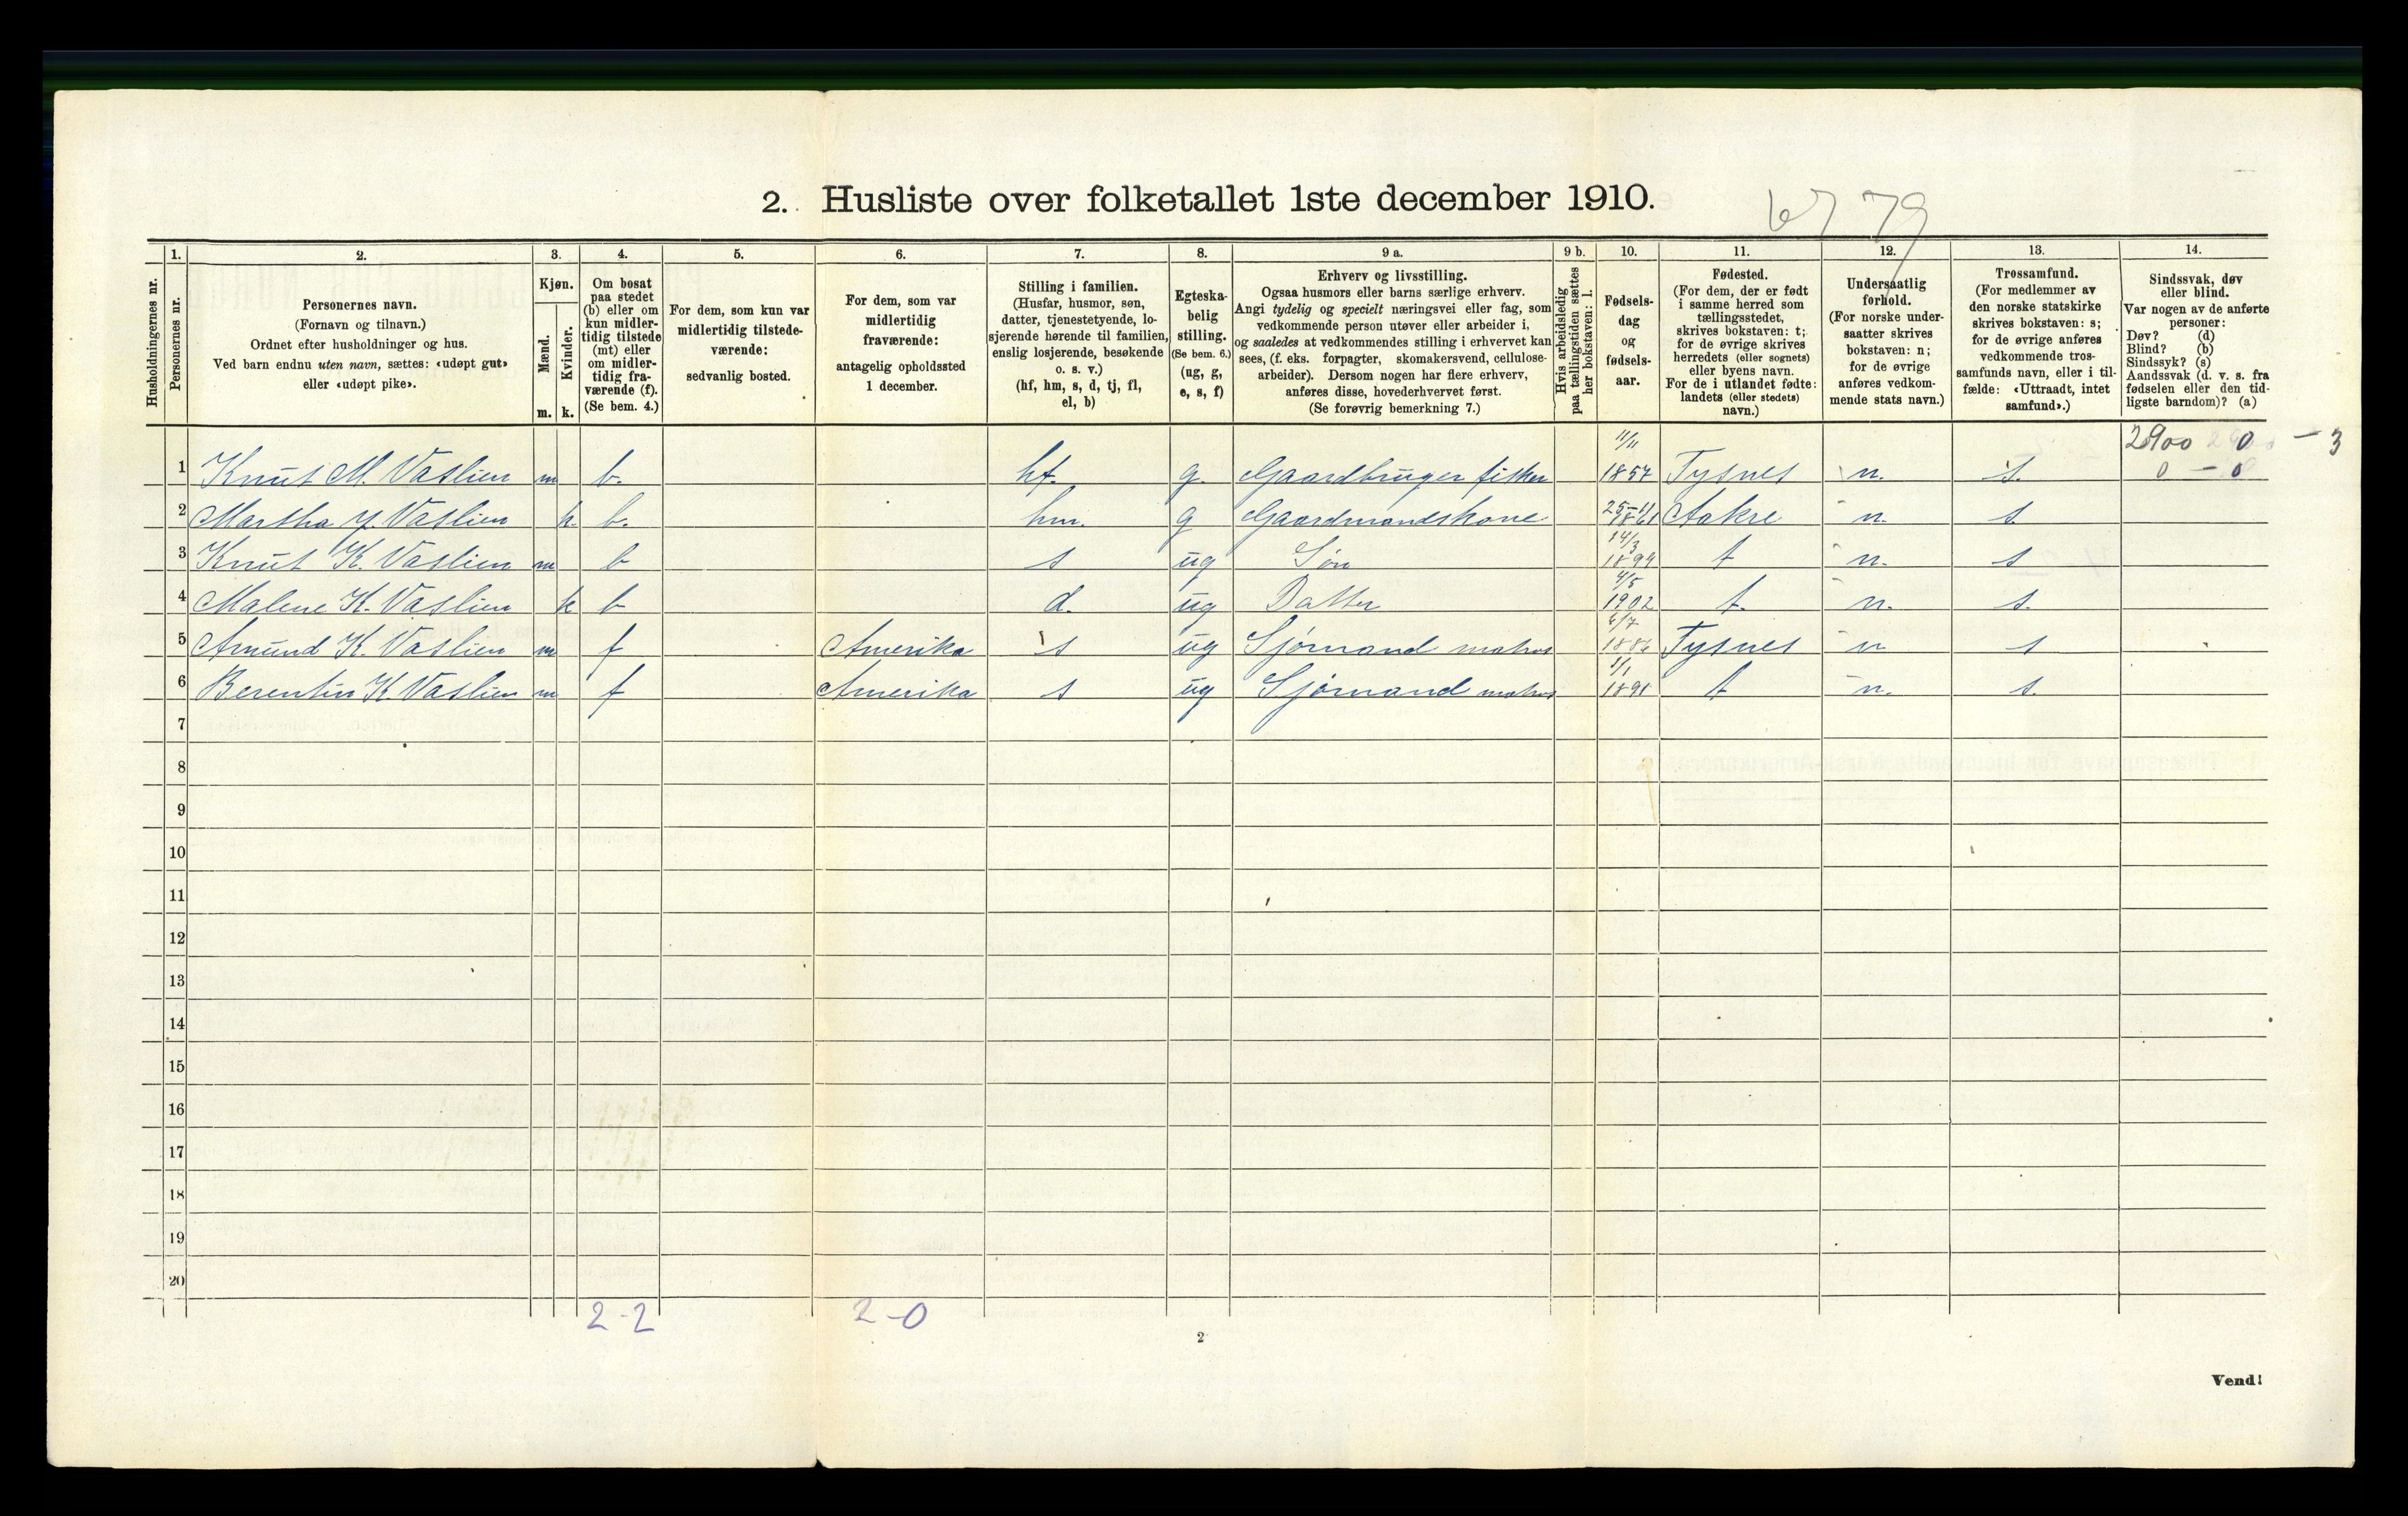 2. Husliste over folketallet 1ste december 1910.
67 79
1. 2. 3. 4. 5. 6. 7. 8. 9 a. 9 b. 10. 11. 12. 13. 14.
Husholdningernes nr.
Personernes nr.
Personernes navn.
(Fornavn og tilnavn.)
Ordnet efter husholdninger og hus.
Ved barn endnu uten navn, sættes: «udøpt gut»
eller «udøpt pike».
Kjøn.
Mænd.
m.
Kvinder.
k.
Om bosat
paa stedet
(b) eller om
kun midler-
tidig tilstede
(mt) eller
om midler-
tidig fra-
værende (f).
(Se bem. 4.)
For dem, som kun var
midlertidig tilstede-
værende:
sedvanlig bosted.
For dem, som var
midlertidig
fraværende:
antagelig opholdssted
1 december.
Stilling i familien.
(Husfar, husmor, søn,
datter, tjenestetyende, lo-
sjerende hørende til familien,
enslig losjerende, besøkende
o. s. v.)
(hf, hm, s, d, tj, fl,
el, b)
Egteska-
belig
stilling.
(Se bem. 6.)
(ug, g,
e, s, f)
Erhverv og livsstilling.
Ogsaa husmors eller barns særlige erhverv.
Angi tydelig og specielt næringsvei eller fag, som
vedkommende person utøver eller arbeider i,
og saaledes at vedkommendes stilling i erhvervet kan
sees, (f. eks. forpagter, skomakersvend, cellulose-
arbeider). Dersom nogen har flere erhverv,
anføres disse, hovederhvervet først.
(Se forøvrig bemerkning 7.)
Hvis arbeidsledig
paa tællingstiden sættes
her bokstaven: l.
Fødsels-
dag
og
fødsels-
aar.
Fødested.
(For dem, der er født
i samme herred som
tællingsstedet,
skrives bokstaven: t;
for de øvrige skrives
herredets (eller sognets)
eller byens navn.
For de i utlandet fødte:
landets (eller stedets)
navn.)
Undersaatlig
forhold.
(For norske under-
saatter skrives
bokstaven: n;
for de øvrige
anføres vedkom-
mende stats navn.)
Trossamfund.
(For medlemmer av
den norske statskirke
skrives bokstaven: s;
for de øvrige anføres
vedkommende tros-
samfunds navn, eller i til-
fælde: «Uttraadt, intet
samfund».)
Sindssvak, døv
eller blind.
Var nogen av de anførte
personer:
Døv? (d)
Blind? (b)
Sindssyk? (s)
Aandssvak (d. v. s. fra
fødselen eller den tid-
ligste barndom)? (a)
2900 0 - 3
0 - 0
1 Knut M. Vaslien m b. hf. g. Gaardbruger fisker 11/11 1857 Tysnes n. s.
2 Martha Y Vaslien k. b. hm. g Gaardmandskone 25-11 1861 Aakre n. s.
3 Knut K. Vaslien m b s ug Søn 14/3 1899 t n. s
4 Malene K. Vaslien k b d. ug Datter 4/5 1902 t. n. s.
5 Amund K. Vaslien m f Amerika s ug Sjømand matros 6/7 1886 Tysnes n s
6 Berentin K Vaslien m f Amerika s ug Sjømand matros 1/1 1891 t n. s.
7
8
9
10
11
12
13
14
15
16
17
18
19
20
2-2 2-0
2
Vend!